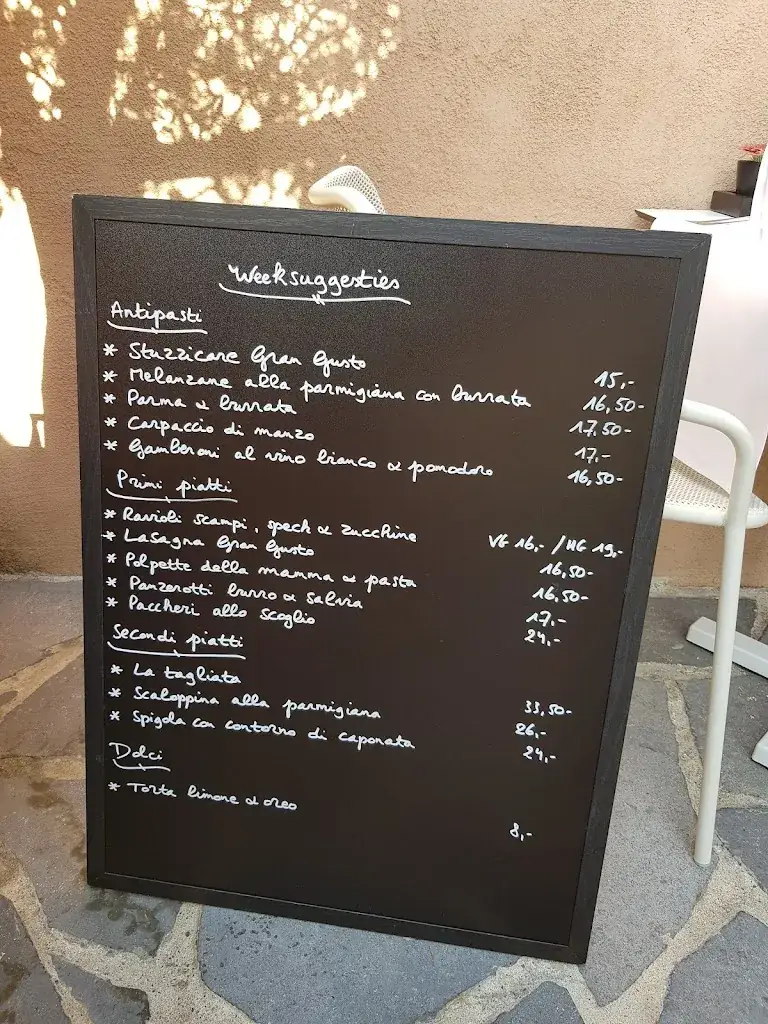 Weeksuggesties
Antipasti
* Stuzzicare Gran Gusto 15,-
* Melanzane alla parmigiana con burrata 16,50-
* Parma & burrata 17,50-
* Carpaccio di manzo 17,-
* Gamberoni al vino bianco & pomodoro 16,50-
Primi piatti
* Ravioli scampi, speck & zucchine VG 16,- / HG 19,-
* Lasagna Gran Gusto 16,50-
* Polpette della mamma & pasta 16,50-
* Panzerotti burro & salvia 17,-
* Paccheri allo scoglio 24,-
Secondi piatti
* La tagliata 33,50-
* Scaloppina alla parmigiana 26,-
* Spigola con contorno di caponata 24,-
Dolci
* Torta limone & oreo 8,-